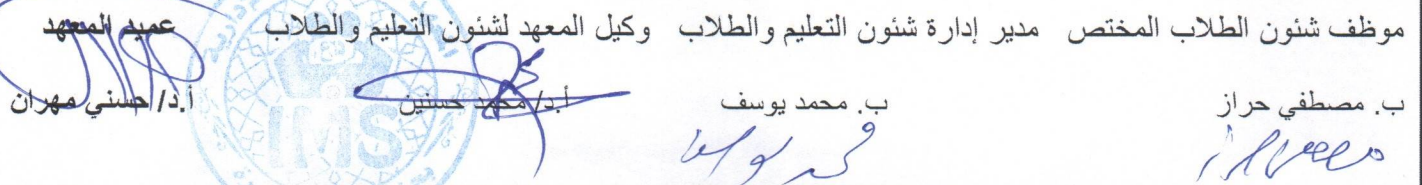 موظف شئون الطلاب المختص   مدير إدارة شئون التعليم والطلاب   وكيل المعهد لشئون التعليم والطلاب   عميد المعهد
ب. مصطفي حراز   ب. محمد يوسف   أ.د/ محمد حسنين   أ.د/ حسني مهران
IMS